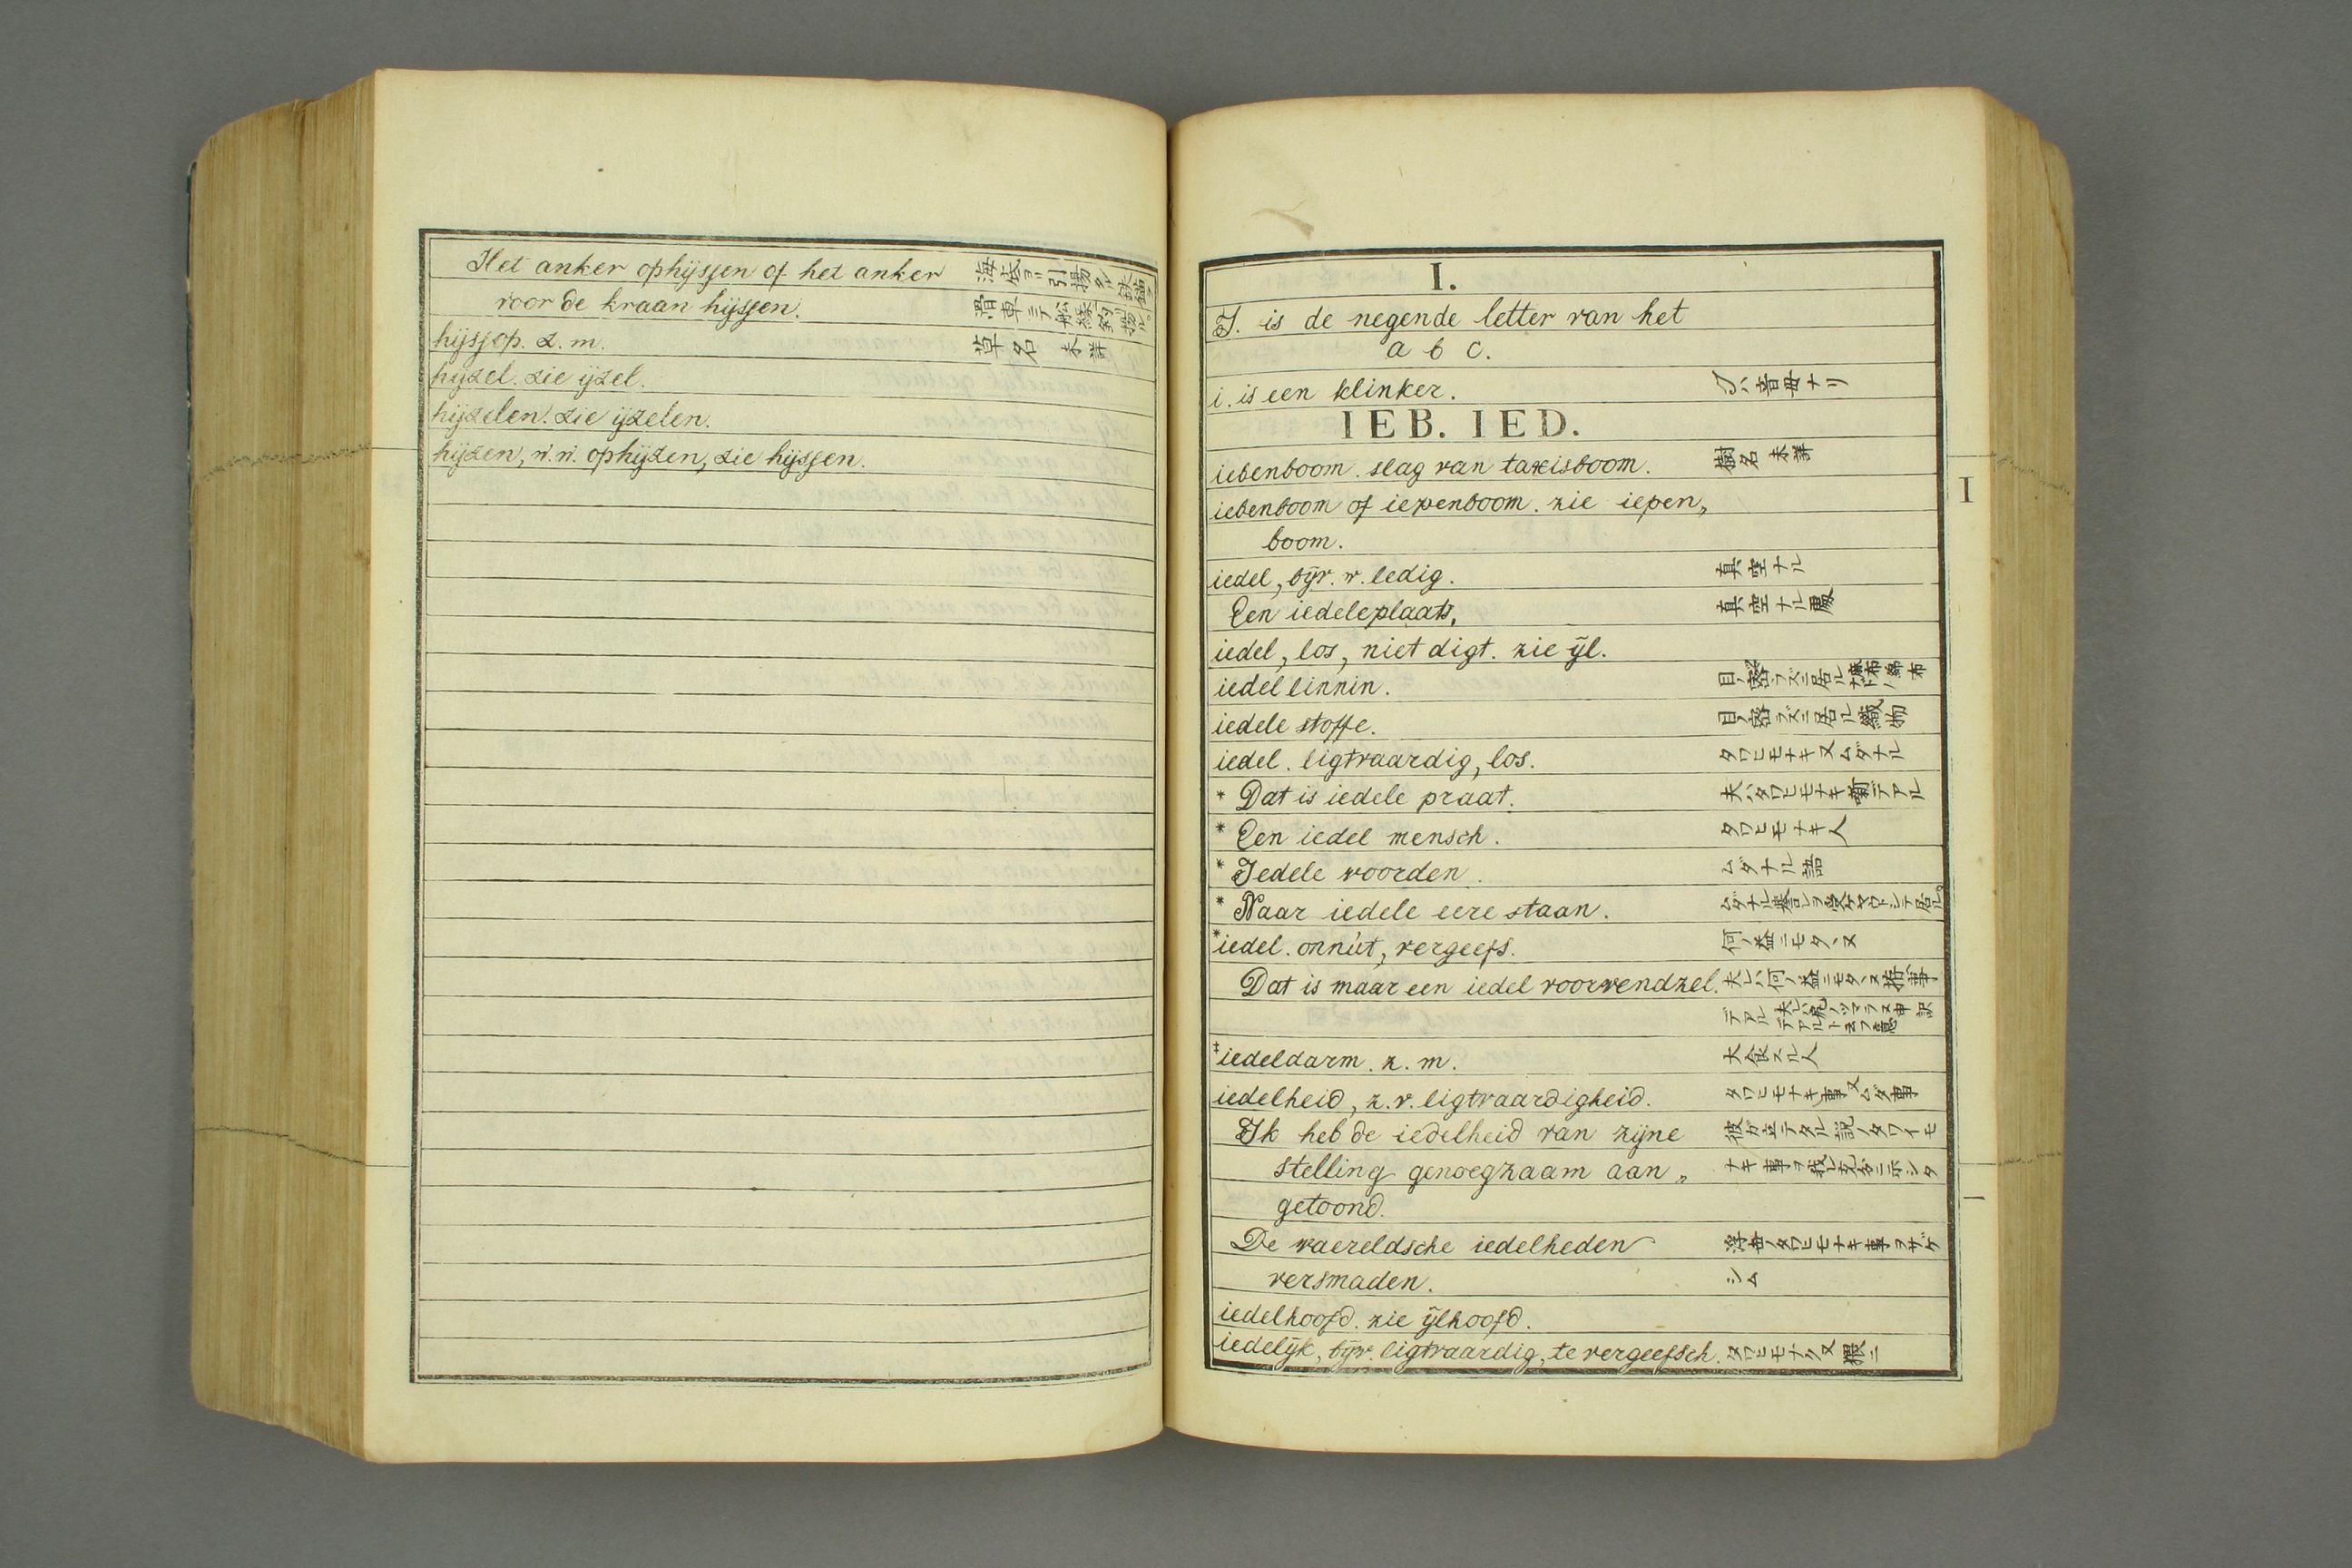 Het anker ophijssen of het anker 海底ヨリ引揚タル鉄錨ヲ
voor de kraan hijssen. 滑車ニテ舩縁ニ釣揚ル
hijssop. z. m. 草名 未詳
hijzel. zie ijzel.
hijzelen. zie ijzelen.
hijzen, w. w. ophijzen, zie hijssen.
I.
I. is de negende letter van het
a b c.
i. is een klinker. 音母ナリ
IEB. IED.
iebenboom. slag van taxisboom. 樹名 未詳
iebenboom of iepenboom. zie iepen„
boom.
iedel, bijv. w. ledig. 真空ナル
Een iedele plaats, 真空ナル處
iedel, los, niet digt. zie ijl.
iedel linnin. 目ノ密ラズニ居ル
iedele stoffe. 目ノ密ラズニ居ル織物
iedel. ligtvaardig, los. タワヒモナキ又ムダナル
* Dat is iedele praat. 夫ハタワヒモナキ噺デアル
* Een iedel mensch. タワヒモナキ人
* Iedele woorden. ムダナル語
* Naar iedele eere staan. ムダナル
* iedel. onnut, vergeefs. 何ノ益ニモタヽヌ
Dat is maar een iedel voorwendzel. 夫レハ何ノ益ニモタヽヌ
デアル
‡ iedeldarm. z. m. 大食スル人
iedelheid, z. v. ligtvaardigheid. タワヒモナキ事又ムダ事
Ik heb de iedelheid van zijne 彼ガ立テタル説ノタワイモ
stelling genoegzaam aan„ ナキ事ヲ我レ充分ニ示シタ
getoond.
De waereldsche iedelheden 浮世ノタワヒモナキ事ヲサゲ
versmaden. シム
iedelhoofd. zie ijlhoofd.
iedelijk, bijv. ligtvaardig, te vergeefsch. タワヒモナク又猥ニ
I